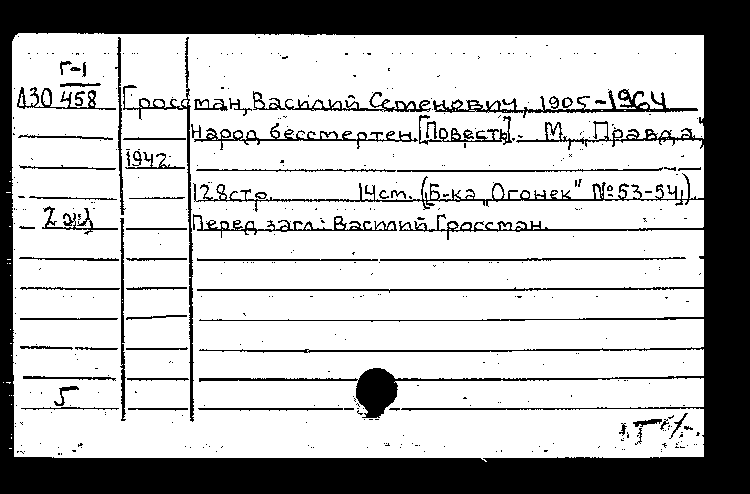 Г-1
Д30 458 Гроссман, Василий Семенович, 1905-1964
Народ бессмертен. [Повесть]. М., „Правда",
1942.
128стр. 14см. (Б-ка „Огонек" №53-54).
2 экз
Перед загл.: Василий Гроссман.
5